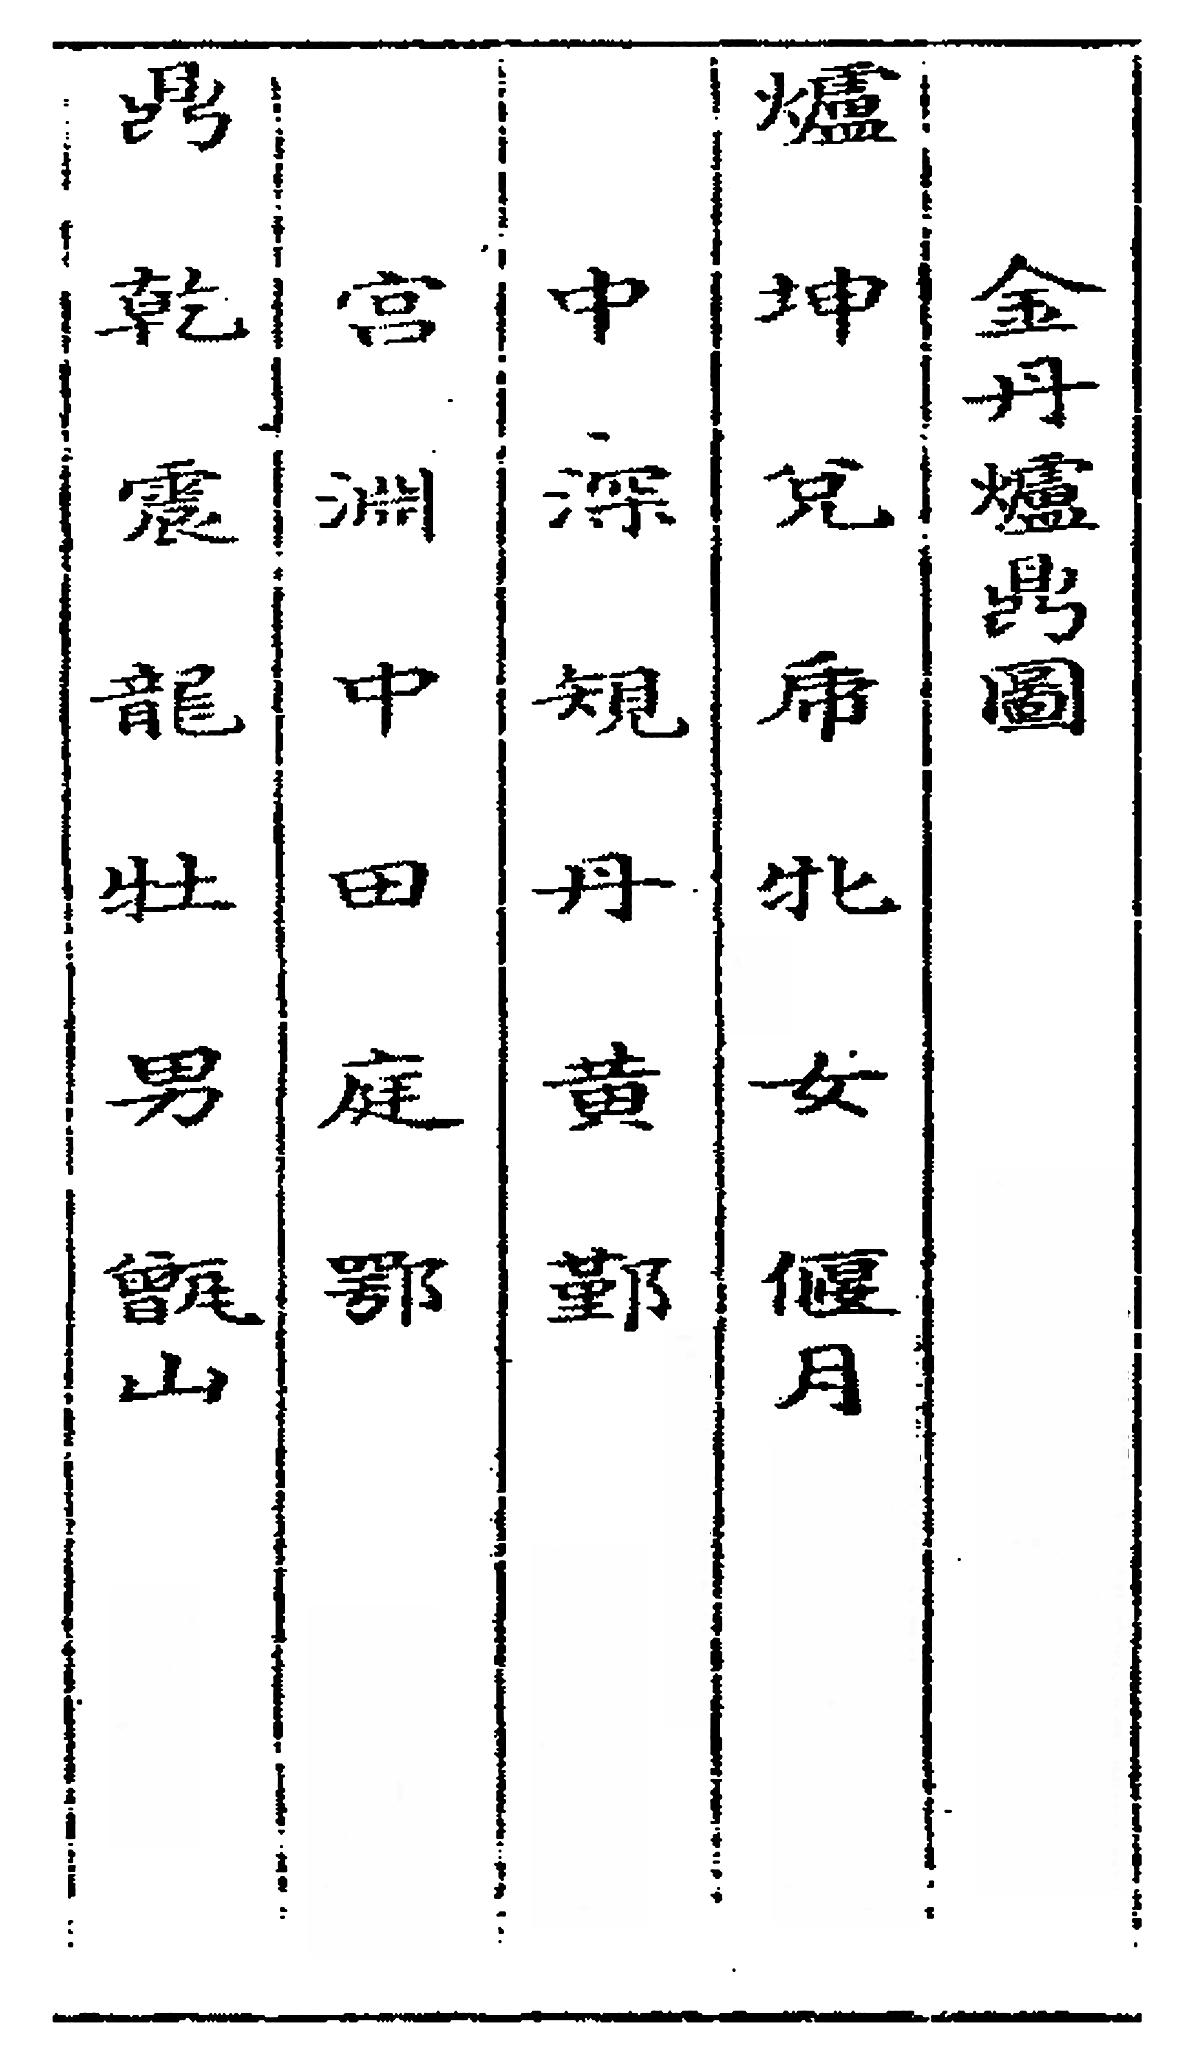 金丹爐鼎圖
爐 坤 兌 虎 牝 女 偃月
中 深 䂓 丹 黃 鄞
宮 淵 中 田 庭 鄂
鼎 乾 震 龍 牡 男 甑山